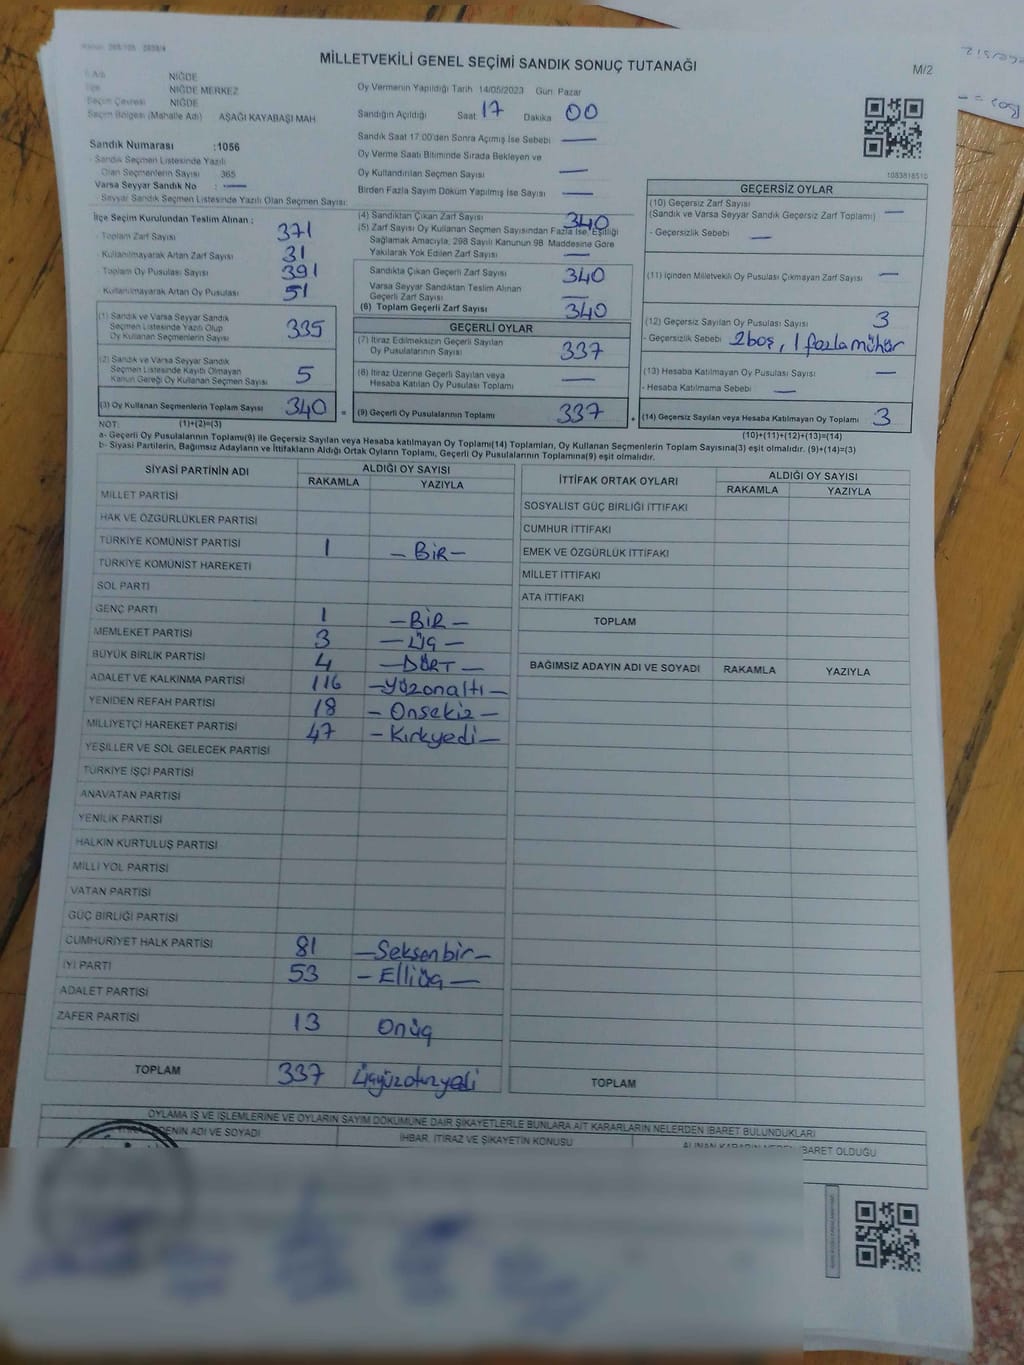 MİLLETVEKİLİ GENEL SEÇİMİ SANDIK SONUÇ TUTANAĞI
M/2
NİĞDE
NİĞDE MERKEZ
Seçim Çevresi NİĞDE
Seçim Bölgesi (Mahalle Adı) AŞAĞI KAYABAŞI MAH
Sandık Numarası :1056
- Sandık Seçmen Listesinde Yazılı
Olan Seçmenlerin Sayısı 365
Varsa Seyyar Sandık No : —
- Seyyar Sandık Seçmen Listesinde Yazılı Olan Seçmen Sayısı:
Oy Vermenin Yapıldığı Tarih 14/05/2023 Gün: Pazar
Sandığın Açıldığı Saat 17 Dakika 00
Sandık Saat 17:00'den Sonra Açılmış İse Sebebi —
Oy Verme Saati Bitiminde Sırada Bekleyen ve
Oy Kullandırılan Seçmen Sayısı —
Birden Fazla Sayım Döküm Yapılmış İse Sayısı —
1083818510
İlçe Seçim Kurulundan Teslim Alınan ;
- Toplam Zarf Sayısı 371
Kullanılmayarak Artan Zarf Sayısı 31
Toplam Oy Pusulası Sayısı 391
Kullanılmayarak Artan Oy Pusulası 51
(1) Sandık ve Varsa Seyyar Sandık
Seçmen Listesinde Yazılı Olup
Oy Kullanan Seçmenlerin Sayısı 335
(2) Sandık ve Varsa Seyyar Sandık
Seçmen Listesinde Kayıtlı Olmayan
Kanun Gereği Oy Kullanan Seçmen Sayısı 5
(3) Oy Kullanan Seçmenlerin Toplam Sayısı 340 =
(4) Sandıktan Çıkan Zarf Sayısı 340
(5) Zarf Sayısı Oy Kullanan Seçmen Sayısından Fazla İse, Eşitliği
Sağlamak Amacıyla, 298 Sayılı Kanunun 98 Maddesine Göre
Yakılarak Yok Edilen Zarf Sayısı —
Sandıkta Çıkan Geçerli Zarf Sayısı 340
Varsa Seyyar Sandıktan Teslim Alınan
Geçerli Zarf Sayısı —
(6) Toplam Geçerli Zarf Sayısı 340
GEÇERLİ OYLAR
(7) İtiraz Edilmeksizin Geçerli Sayılan
Oy Pusulalarının Sayısı 337
(8) İtiraz Üzerine Geçerli Sayılan veya
Hesaba Katılan Oy Pusulası Toplamı —
(9) Geçerli Oy Pusulalarının Toplamı 337 +
GEÇERSİZ OYLAR
(10) Geçersiz Zarf Sayısı
(Sandık ve Varsa Seyyar Sandık Geçersiz Zarf Toplamı) —
- Geçersizlik Sebebi —
(11) İçinden Milletvekili Oy Pusulası Çıkmayan Zarf Sayısı —
(12) Geçersiz Sayılan Oy Pusulası Sayısı 3
- Geçersizlik Sebebi 2boş, 1 fazla mühür
(13) Hesaba Katılmayan Oy Pusulası Sayısı —
- Hesaba Katılmama Sebebi —
(14) Geçersiz Sayılan veya Hesaba Katılmayan Oy Toplamı 3
NOT: (1)+(2)=(3)
(10)+(11)+(12)+(13)=(14)
a- Geçerli Oy Pusulalarının Toplamı(9) ile Geçersiz Sayılan veya Hesaba katılmayan Oy Toplamı(14) Toplamları, Oy Kullanan Seçmenlerin Toplam Sayısına(3) eşit olmalıdır. (9)+(14)=(3)
b- Siyasi Partilerin, Bağımsız Adayların ve İttifakların Aldığı Ortak Oyların Toplamı, Geçerli Oy Pusulalarının Toplamına(9) eşit olmalıdır.
SİYASİ PARTİNİN ADI ALDIĞI OY SAYISI
RAKAMLA YAZIYLA
MİLLET PARTİSİ
HAK VE ÖZGÜRLÜKLER PARTİSİ
TÜRKİYE KOMÜNİST PARTİSİ 1 —BİR—
TÜRKİYE KOMÜNİST HAREKETİ
SOL PARTİ
GENÇ PARTİ 1 —BİR—
MEMLEKET PARTİSİ 3 —ÜÇ—
BÜYÜK BİRLİK PARTİSİ 4 —DÖRT—
ADALET VE KALKINMA PARTİSİ 116 —Yüzonaltı—
YENİDEN REFAH PARTİSİ 18 —Onsekiz—
MİLLİYETÇİ HAREKET PARTİSİ 47 —Kırkyedi—
YEŞİLLER VE SOL GELECEK PARTİSİ
TÜRKİYE İŞÇİ PARTİSİ
ANAVATAN PARTİSİ
YENİLİK PARTİSİ
HALKIN KURTULUŞ PARTİSİ
MİLLİ YOL PARTİSİ
VATAN PARTİSİ
GÜÇ BİRLİĞİ PARTİSİ
CUMHURİYET HALK PARTİSİ 81 —Seksenbir—
İYİ PARTİ 53 —Elliüç—
ADALET PARTİSİ
ZAFER PARTİSİ 13 Onüç
TOPLAM 337 Üçyüzotuzyedi
İTTİFAK ORTAK OYLARI ALDIĞI OY SAYISI
RAKAMLA YAZIYLA
SOSYALİST GÜÇ BİRLİĞİ İTTİFAKI
CUMHUR İTTİFAKI
EMEK VE ÖZGÜRLÜK İTTİFAKI
MİLLET İTTİFAKI
ATA İTTİFAKI
TOPLAM
BAĞIMSIZ ADAYIN ADI VE SOYADI RAKAMLA YAZIYLA
TOPLAM
OYLAMA İŞ VE İŞLEMLERİNE VE OYLARIN SAYIM DÖKÜMÜNE DAİR ŞİKAYETLERLE BUNLARA AİT KARARLARIN NELERDEN İBARET BULUNDUKLARI
ADI VE SOYADI
İHBAR, İTİRAZ VE ŞİKAYETİN KONUSU
İBARET OLDUĞU